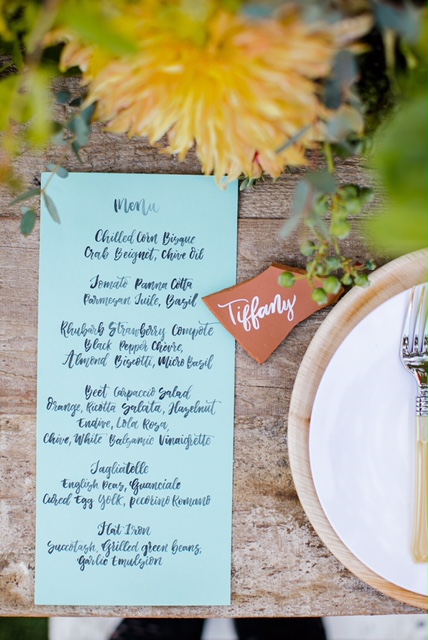 Menu
Chilled Corn Bisque
Crab Beignet, Chive Oil
Tomato Panna Cotta
Parmesan Tuile, Basil
Rhubarb Strawberry Compote
Black Pepper Chevre,
Almond Biscotti, Micro Basil
Beet Carpaccio Salad
Orange, Ricotta Salata, Hazelnut
Endive, Lola Rosa,
Chive, White Balsamic Vinaigrette
Tagliatelle
English Peas, Guanciale
Cured Egg Yolk, pecorino Romano
Flat Iron
Succotash, Grilled green beans,
Garlic Emulsion
Tiffany